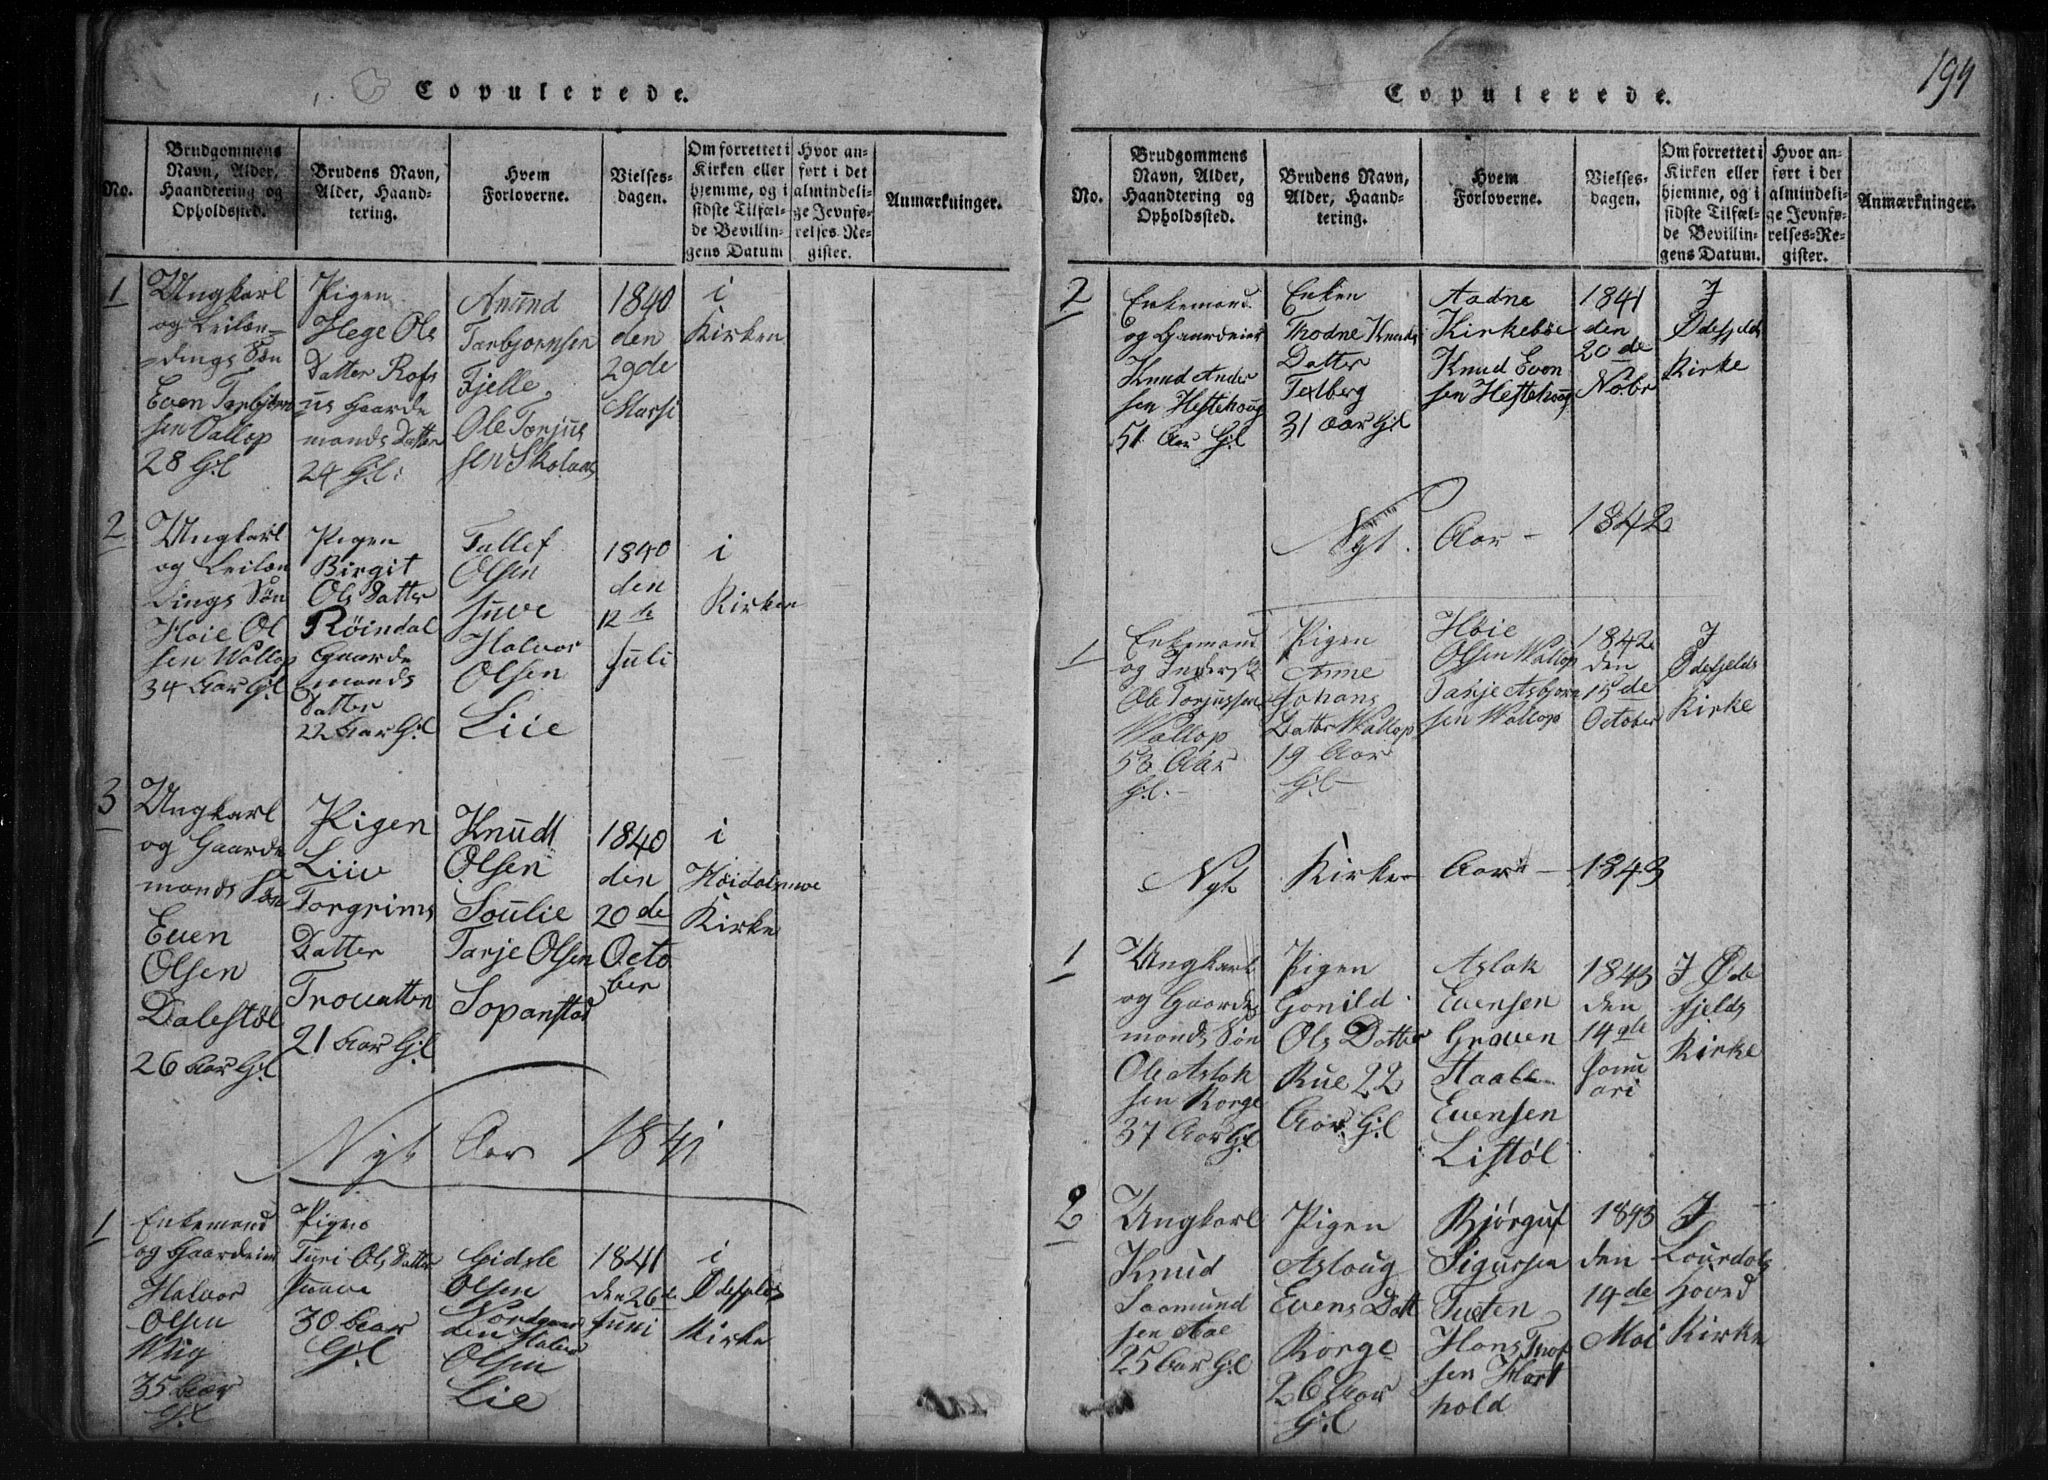 194
Copulerede.
No.
Brudgommens
Navn, Alder,
Haandtering og
Opholdssted.
Brudens Navn,
Alder, Haand-
tering.
Hvem
Forloverne.
Vielses-
dagen.
Om forrettet i
Kirken eller
hjemme, og i
sidste Tilfæl-
de Bevillin-
gens Datum
Hvor an-
ført i det
almindeli-
ge Jevnfø-
relses-Re-
gister.
Anmærkninger.
1
Ungkarl
og Leilæn-
dings Søn
Even Tarbjørn
sen Vallop
28 Gl
Pigen
Hege Ols
Datter Rofs
us Gaarde
mands Datter
24 Gl:
Anund
Tarbjornsen
Fjelle
Ole Torjus
sen Skolaas
1840
den
29de
Marsi
i
Kirken
2
Ungkarl
og Leilæn
dings Søn
Hoie Ol
sen Wallop
34 Aar Gl
Pigen
Birgit
Ols Datter
Röindal
Gaarde
mands
Datter
22 Aar Gl
Tallef
Olsen
Juve
Halvor
Olsen
Liie
1840
den
12te
Juli
i
Kirken
3
Ungkarl
og Gaarde
mands Søn
Even
Olsen
Dalestøl
26 Aar Gl
Pigen
Liiv
Torgrims
Datter
Trovatten
21 Aar Gl
Knudt
Olsen
Soulie
Tarje Olsen
Sopanstad
1840
den
20de
Octo
ber
i
Høidalsmoe
Kirke
Nyt Aar 1841
1
Enkemand
og Gaardeier
Halvor
Olsen
Wiig
35 Aar
Gl
Pigen
Turi Ols Datter
30 Aar
Gl
Gidsle
Olsen
Nordgaar
den Halvor
Olsen
Lie
1841
den 26de
Juni
i
Ødefjelds
Kirke
Copulerede.
No.
Brudgommens
Navn, Alder,
Haandtering og
Opholdssted.
Brudens Navn,
Alder, Haand-
tering.
Hvem
Forloverne.
Vielses-
dagen.
Om forrettet i
Kirken eller
hjemme, og i
sidste Tilfæl-
de Bevillin-
gens Datum.
Hvor an-
ført i det
almindeli-
ge Jevnfø-
relses-Re-
gister.
Anmærkninger.
2
Enkemand
og Gaardeier
Knud Ander
sen Hestehoug
51 Aar Gl
Enken
Thodne Knuds
Datter
Texlberg
31 Aar Gl
Aadne
Kirkebøe
Knud Even
sen Hestehoug
1841
den
20de
Nobr
I
Ødefjelds
Kirke
Nyt Aar - 1842
1
Enkemand
og Inderst
Ole Torjussen
Wallop
53 Aar
Gl.-
Pigen
Anne
Johans
Datter Wallop
19 Aar
Gl-
Høie
Olsen Wallop
Tarje Asbjorn
sen Wallop
1842
den
15de
October
I
Ødefjelds
Kirke
Nyt Kirke- Aar - 1843
1
Ungkarl
og Gaarde
mands Søn
Ole Aslak
sen Borge
37 Aar Gl
Pigen
Gonild
Ols Datter
Rue 22
Aar Gl
Aslak
Evensen
Graven
Staale
Evensen
Listøl
1843
den
14de
Janu
ari
I Øde
fjelds
Kirke
2
Ungkarl
Knud
Saamund
sen Aae
25 Aar Gl
Pigen
Asloug
Evens Datt
Borge
26 Aar
Gl
Bjørguf
Sigursen
Tveten
Hans Trof
sen Hart
hold
1843
den
14de
Mai
I
Lourdals
hoved
Kirke